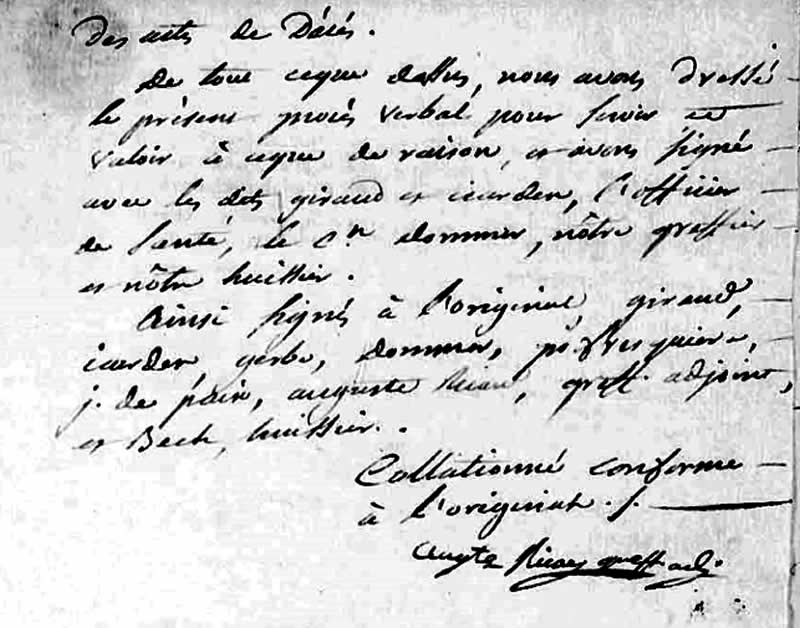 des acts de Dátés.
De tout ceque dessus, nous avons dressé
le présent procés verbal pour servir et
valoir à ceque de raison, et avons signé
avec les dits giraud et icarden, l'officier
de santé, le Cen dommer, nôtre greffier
et nôtre huissier.
Ainsi signés à l'original, giraud,
icarden, gerbe, dommer,
j. de paix, auguste Ricard, greff. adjoint,
et Bech, huissier.
Collationné conforme
à l'original ./.
Augte greff adj.